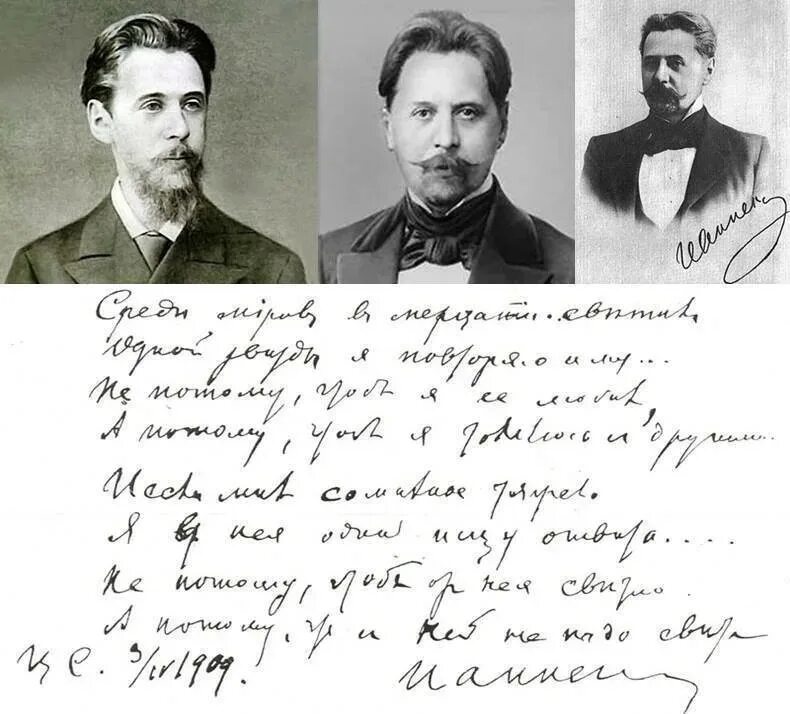 И. Анненский
Среди мiров, в мерцании светил
Одной звезды я повторяю имя...
Не потому, чтоб я ее любил,
А потому, что я томлюсь с другими...
И если мне сомненье тяжело.
Я у нея одной ищу ответа.....
Не потому, чтоб от нея светло.
А потому, что с ней не надо света
Ц С. 3/IV 1909.
И. Анненский